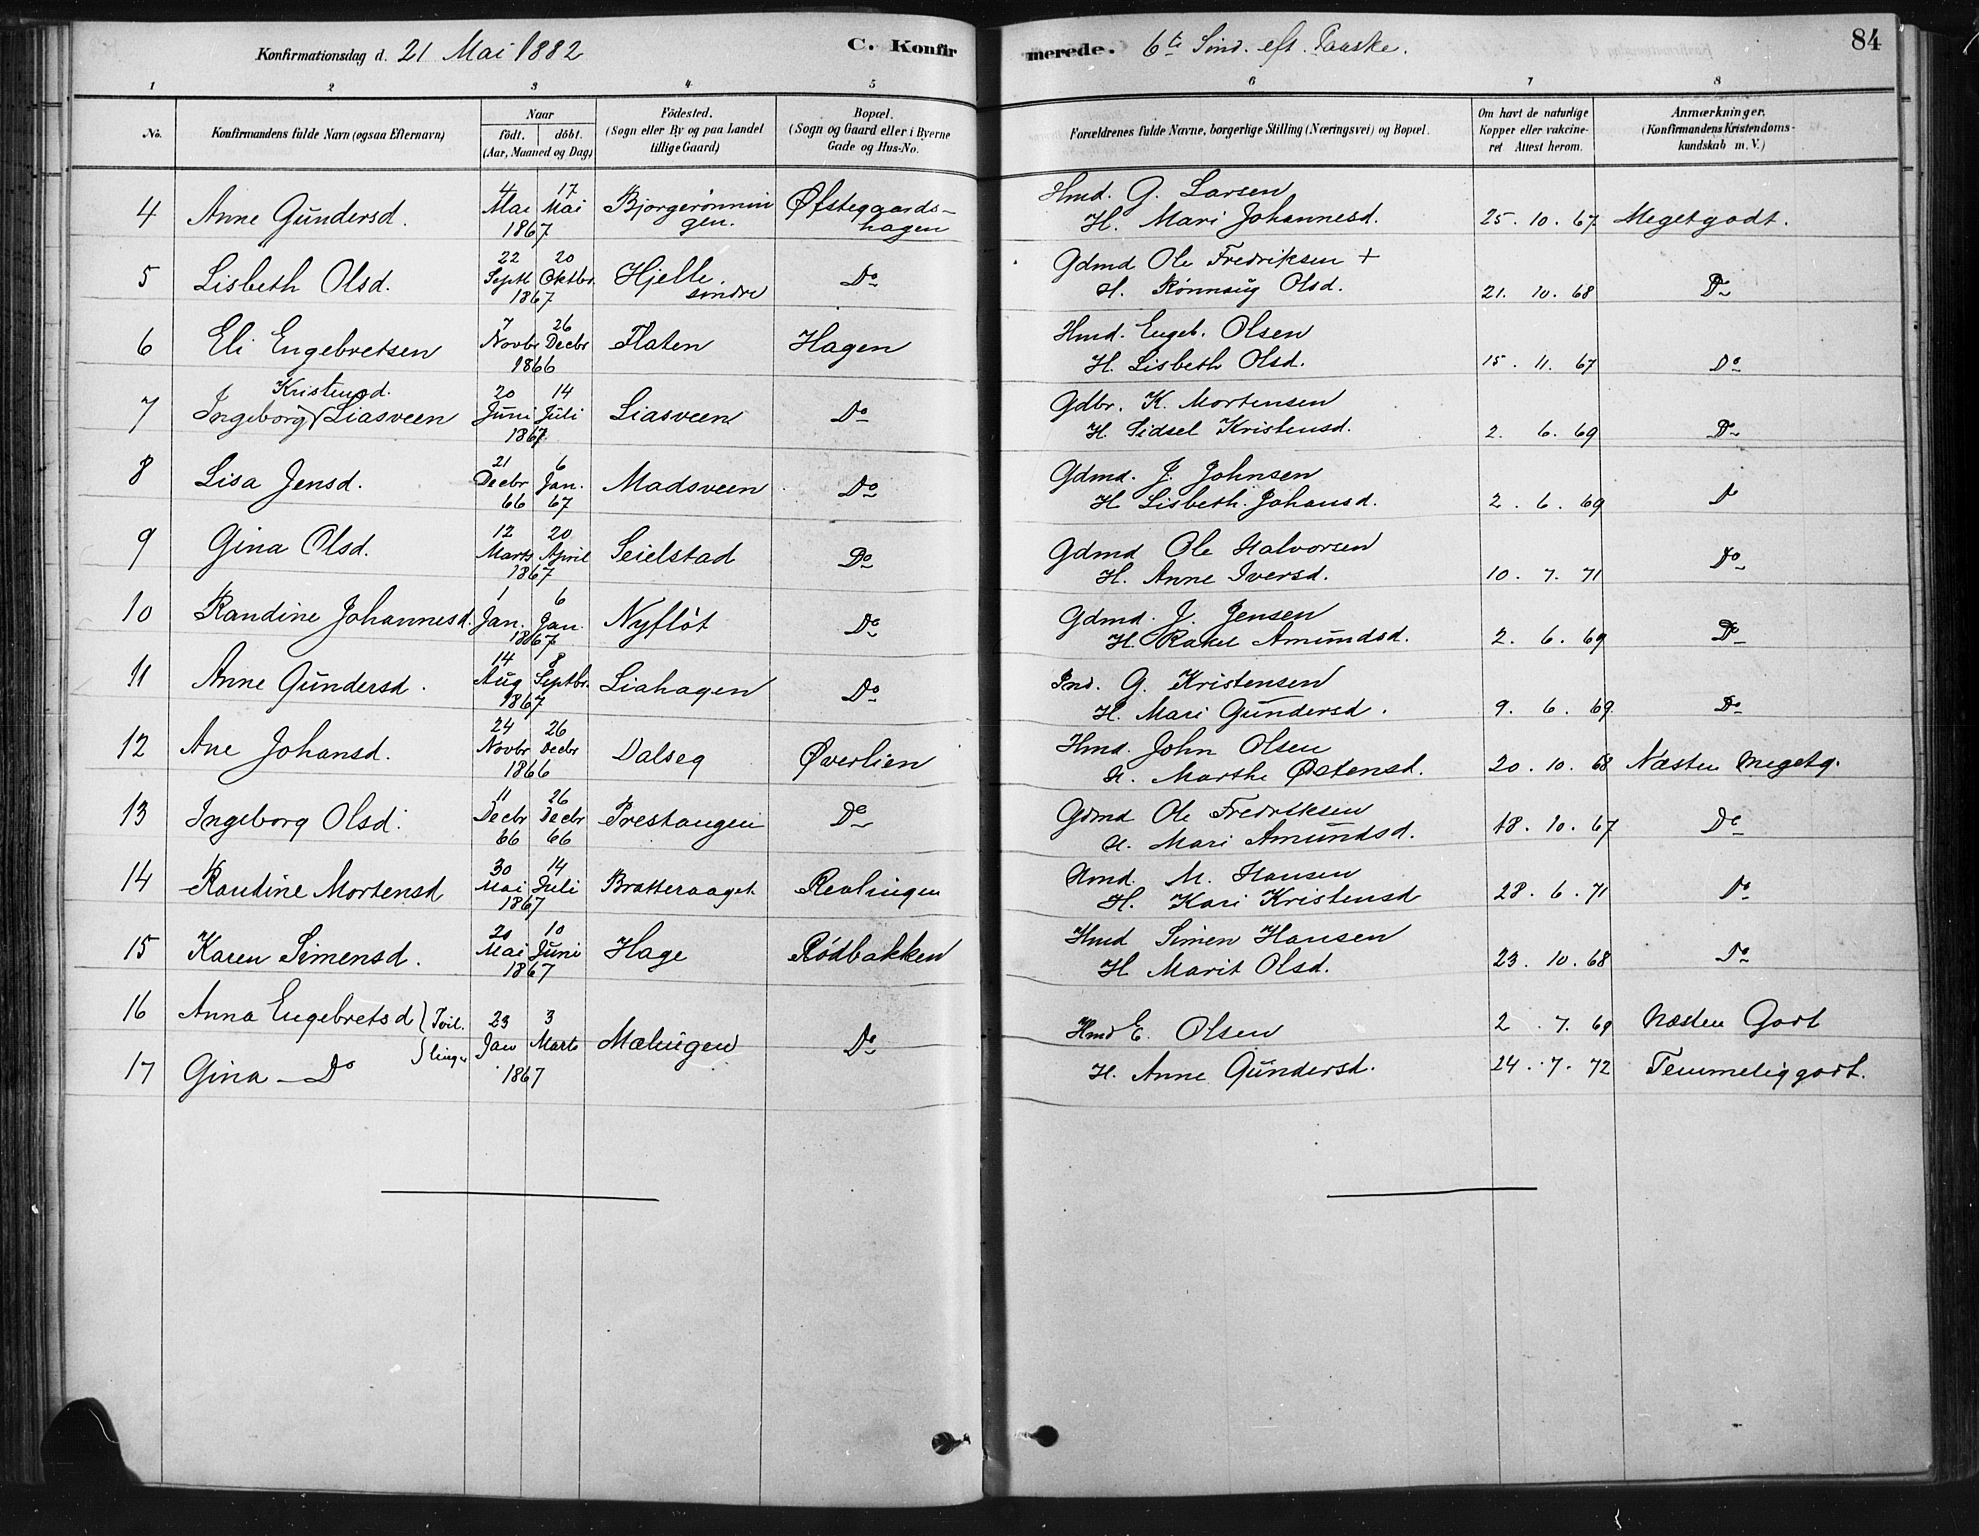 Konfirmationsdag d. 21 Mai 1882 C. Konfirmerede. 6te Sønd. eft. Paaske. 84
1 2 3 4 5 6 7 8
No. Konfirmandens fulde Navn (ogsaa Efternavn) Naar født. døbt. (Aar, Maaned og Dag) Födested. (Sogn eller By og paa Landet tillige Gaard) Bopæl. (Sogn og Gaard eller i Byerne Gade og Hus-No. Forældrenes fulde Navne, borgerlige Stilling (Næringsvei) og Bopæl. Om havt de naturlige Kopper eller vakcineret Attest herom. Anmærkninger. (Konfirmandens Kristendomskundskab m. V.)
4 Anne Gundersd. 4 Mai 17 Mai 1867 Bjørgerønningen. Øfstegaardshagen Hmd. G. Larsen H. Mari Johannesd. 25. 10. 67 Meget godt.
5 Lisbeth Olsd. 22 Septb 20 Oktbr. 1867 Hjelle søndre Do Gdmd Ole Fredriksen + H. Rønnaug Olsd. 21. 10. 68 Do
6 Eli Engebretsen 7 Novbr 26 Decbr 1866 Flaten Hagen Hmd. Engeb. Olsen H. Lisbeth Olsd. 15. 11. 67 Do
7 Ingeborg Kristensd. Liasveen 20 Juni 14 Juli 1867 Liasveen Do Gdbr. K. Mortensen H. Sidsel Kristensd. 2. 6. 69 Do
8 Lisa Jensd. 21 Decbr 66 6 Jan. 67 Madsveen Do Gdmd. J. Johnsen H Lisbeth Johansd. 2. 6. 69 Do
9 Gina Olsd. 12 Marts 20 April 1867 Seielstad Do Gdmd Ole Halvorsen H. Anne Iversd. 10. 7. 71 Do
10 Randine Johannesd. 1 Jan. 6 Jan. 1867 Nyfløt Do Gdmd. J. Jensen H. Rakel Amundsd. 2. 6. 69 Do
11 Anne Gundersd. 14 Aug 8 Septbr. 1867 Liahagen Do Ind. G. Kristensen H. Mari Gundersd. 9. 6. 69 Do
12 Ane Johansd. 24 Novbr 26 Decbr 1866 Dalseg Øverlien Hmd. John Olsen H. Marthe Østensd. 20. 10. 68 Næsten megetg.
13 Ingeborg Olsd. 11 Decbr 66 26 Decbr 66 Prestangen Do Gdmd Ole Fredriksen H. Mari Amundsd. 18. 10. 67 Do
14 Randine Mortensd 30 Mai 14 Juli 1867 Bratteraaget Hmd. M. Hansen H. Kari Kristensd 28. 6. 71 Do
15 Karen Simensd. 20 Mai 10 Juni 1867 Hage Rødbakken Hmd Simen Hansen H Marit Olsd. 23. 10. 68 Do
16 Anna Engebretsd } Tvillinger 23 Jan 3 Marts 1867 Mælingen Do Hmd E. Olsen 2. 7. 69 Næsten Godt
17 Gina Do H. Anne Gundersd. 24. 7. 72 Temmelig godt.